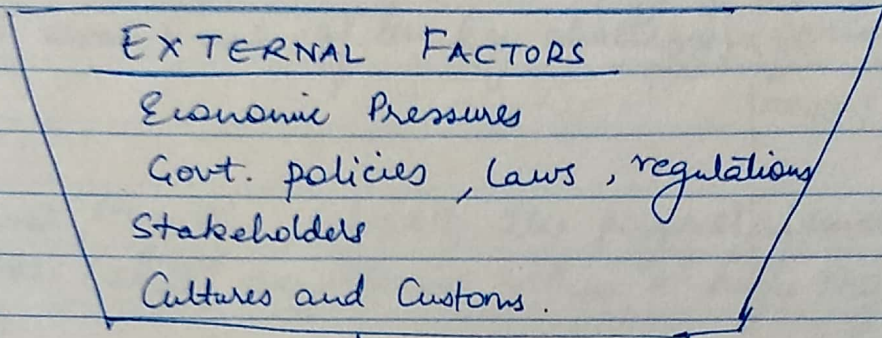 EXTERNAL FACTORS
Economic Pressures
Govt. policies, laws, regulations
Stakeholders
Cultures and Customs.